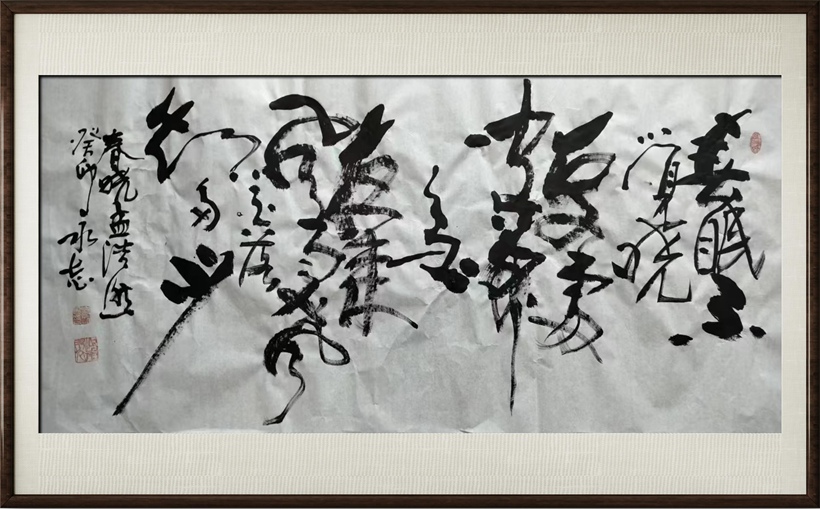 春眠不
觉晓
处处
闻啼
鸟
夜来
风雨声
花落
知多少
春晓孟浩然
癸卯永志